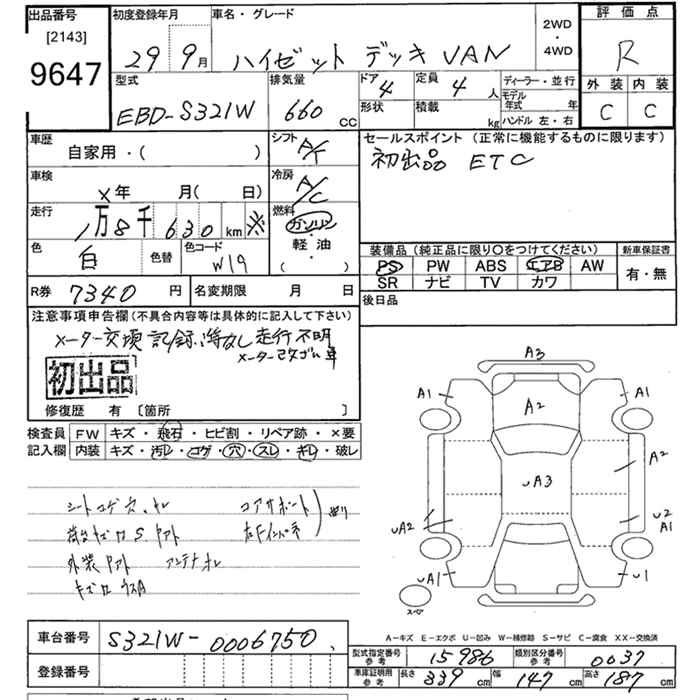 出品番号
[2143]
9647
初度登録年月
29 9月
車名・グレード
ハイゼット デッキ VAN
2WD
・
4WD
評価点
R
外装 内装
C C
型式
EBD-S321W
排気量
660 cc
ドア 4
形状
定員 4 人
積載 kg
ディーラー・並行
モデル年式 年
ハンドル 左・右
車歴
自家用・( )
シフト
A/T
車検
×年 月( 日)
冷房
A/C
走行
1万8千630 km ※
燃料
ガソリン
軽油
( )
色
白
色替
色コード
W19
R券 7340 円
名変期限 月 日
セールスポイント (正常に機能するものに限ります)
初出品 ETC
装備品 (純正品に限り〇をつけてください)
PS PW ABS エアB AW
SR ナビ TV カワ
新車保証書
有・無
後日品
注意事項申告欄(不具合内容等は具体的に記入して下さい)
メーター交換 記録 等なし 走行不明
初出品
修復歴 有 〔箇所 〕
検査員記入欄
FW キズ・飛石・ヒビ割・リペア跡・×要
内装 キズ・汚レ・コゲ・穴・スレ・キレ・破レ
A3
A1 A1
A2
A2
uA3
uA2
u2
A1
uA1 u1
スペア
A-キズ E-エクボ U-凹み W-補修跡 S-サビ C-腐食 XX-交換済
車台番号 S321W-0006750
登録番号
型式指定番号 参考 15986
類別区分番号 参考 0037
車庫証明用 参考 長さ 339 cm 幅 147 cm 高さ 187 cm